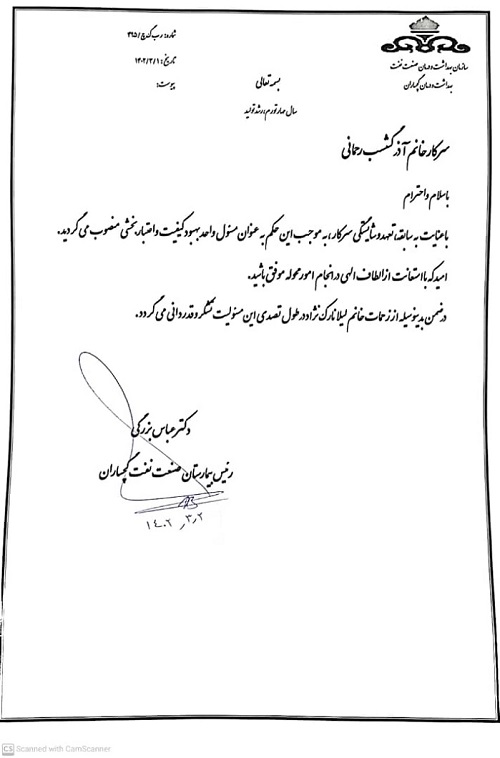 شماره: ب گ چ/۳۹۵
سازمان بهداشت و درمان صنعت نفت
تاریخ: ۱۴۰۲/۳/۱
بهداشت و درمان گچساران
پیوست:
بسمه تعالی
سال مهار تورم، رشد تولید
سرکار خانم آذرگشسب رحمانی
باسلام و احترام
با عنایت به سابقه، تعهد و شایستگی سرکار، به موجب این حکم به عنوان مسئول واحد بهبود کیفیت و اعتبار بخشی منصوب می گردید.
امید که با استعانت از الطاف الهی در انجام امور محوله موفق باشید.
در ضمن بدینوسیله از زحمات خانم لیلا نارک نژاد در طول تصدی این مسئولیت تشکر و قدردانی می گردد.
دکتر عباس بزرگی
رئیس بیمارستان صنعت نفت گچساران
۱۴۰۲٫۳٫۲
CS Scanned with CamScanner